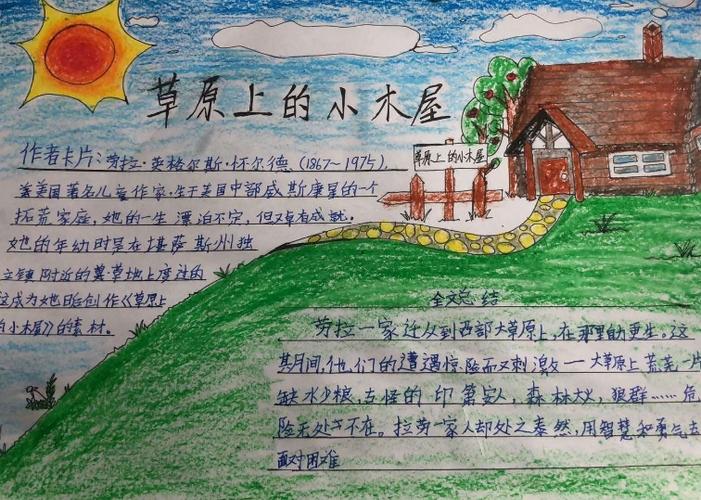 草原上的小木屋
草原上的小木屋
作者卡片：劳拉·英格尔斯·怀尔德（1867～1975）.
美国著名儿童作家.生于美国中部威斯康星的一个
拓荒家庭，她的一生漂泊不定，但却有成就.
她的年幼时是在堪萨斯州独
立镇附近的草地上度过的
这成为她日后创作《草原上
的小木屋》的素材.
全文总结
劳拉一家迁从到西部大草原上，在那里自力更生。这
其月间，他们的遭遇惊险而又刺激——大草原上荒芜一片
缺水少粮，古怪的印第安人，森林大火，狼群……危
险无处不在。拉劳一家人却处之泰然，用智慧和勇气去
面对困难